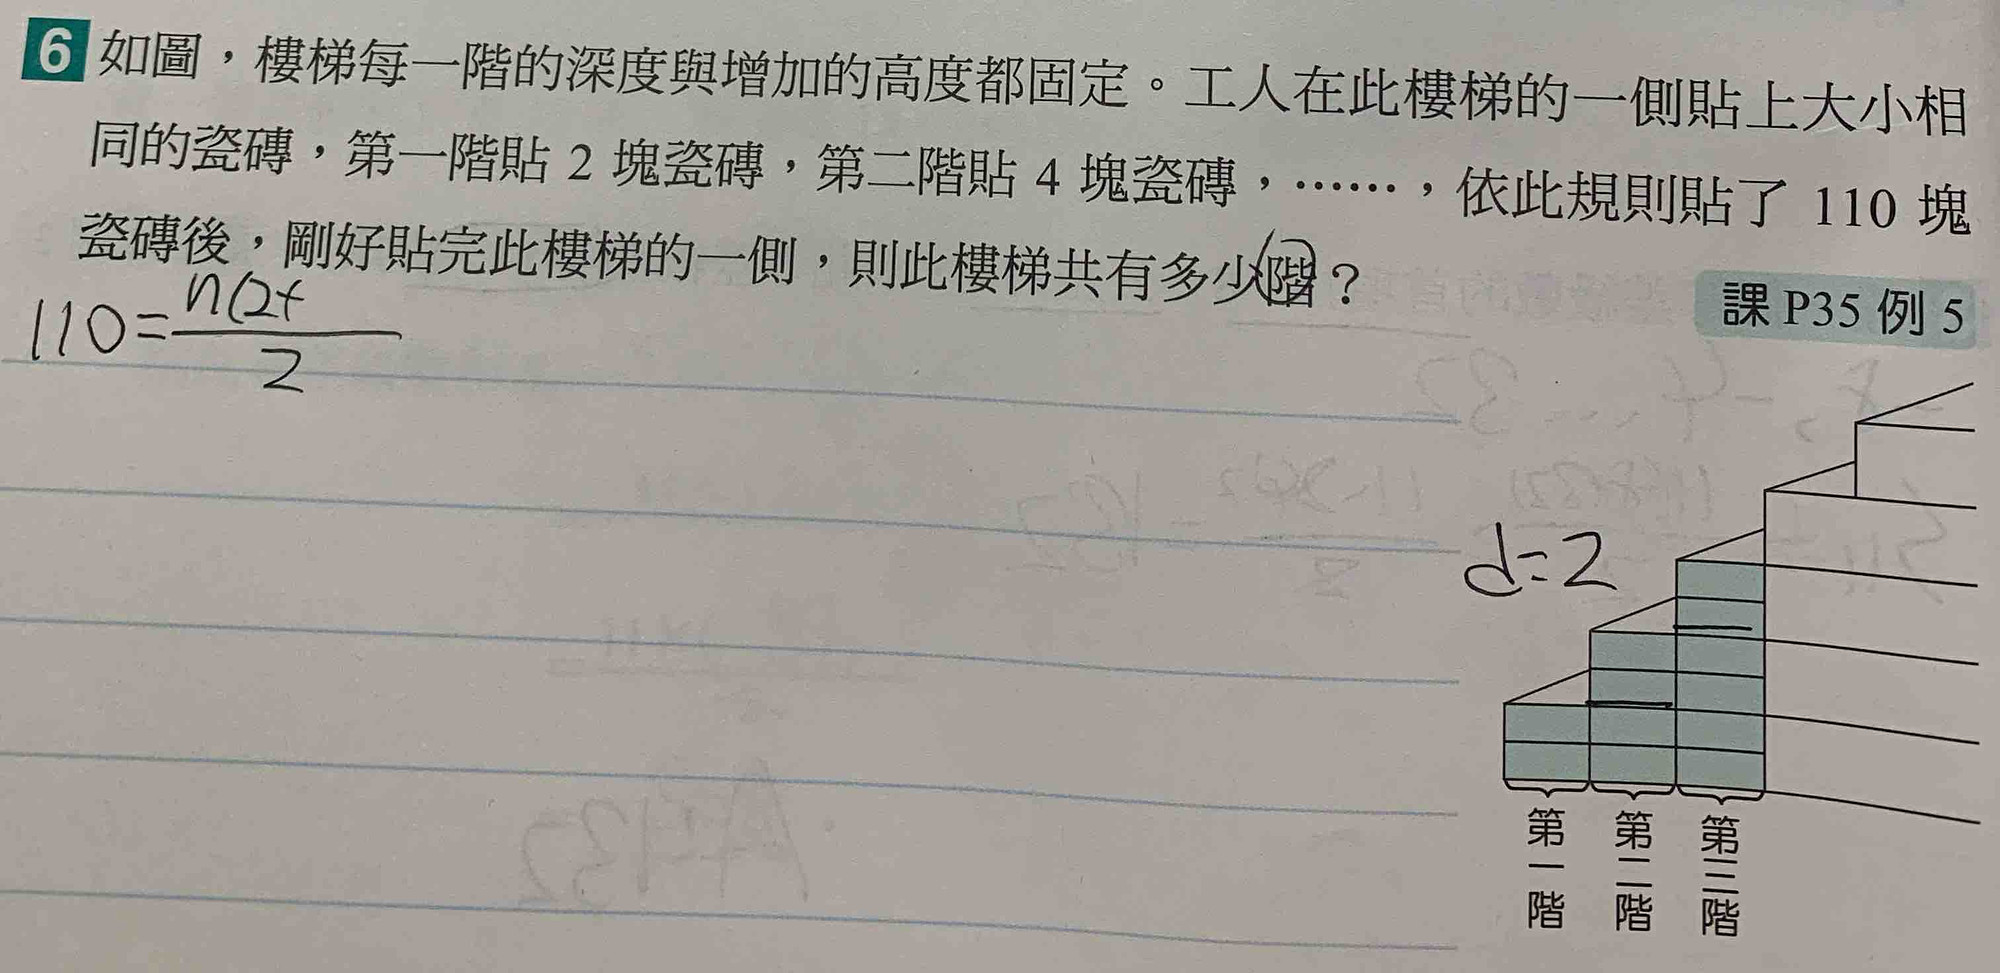 6 如圖，樓梯每一階的深度與增加的高度都固定。工人在此樓梯的一側貼上大小相
同的瓷磚，第一階貼 2 塊瓷磚，第二階貼 4 塊瓷磚，……，依此規則貼了 110 塊
瓷磚後，剛好貼完此樓梯的一側，則此樓梯共有多少階？
課 P35 例 5
110=n(2+
2
d=2
第一階
第二階
第三階